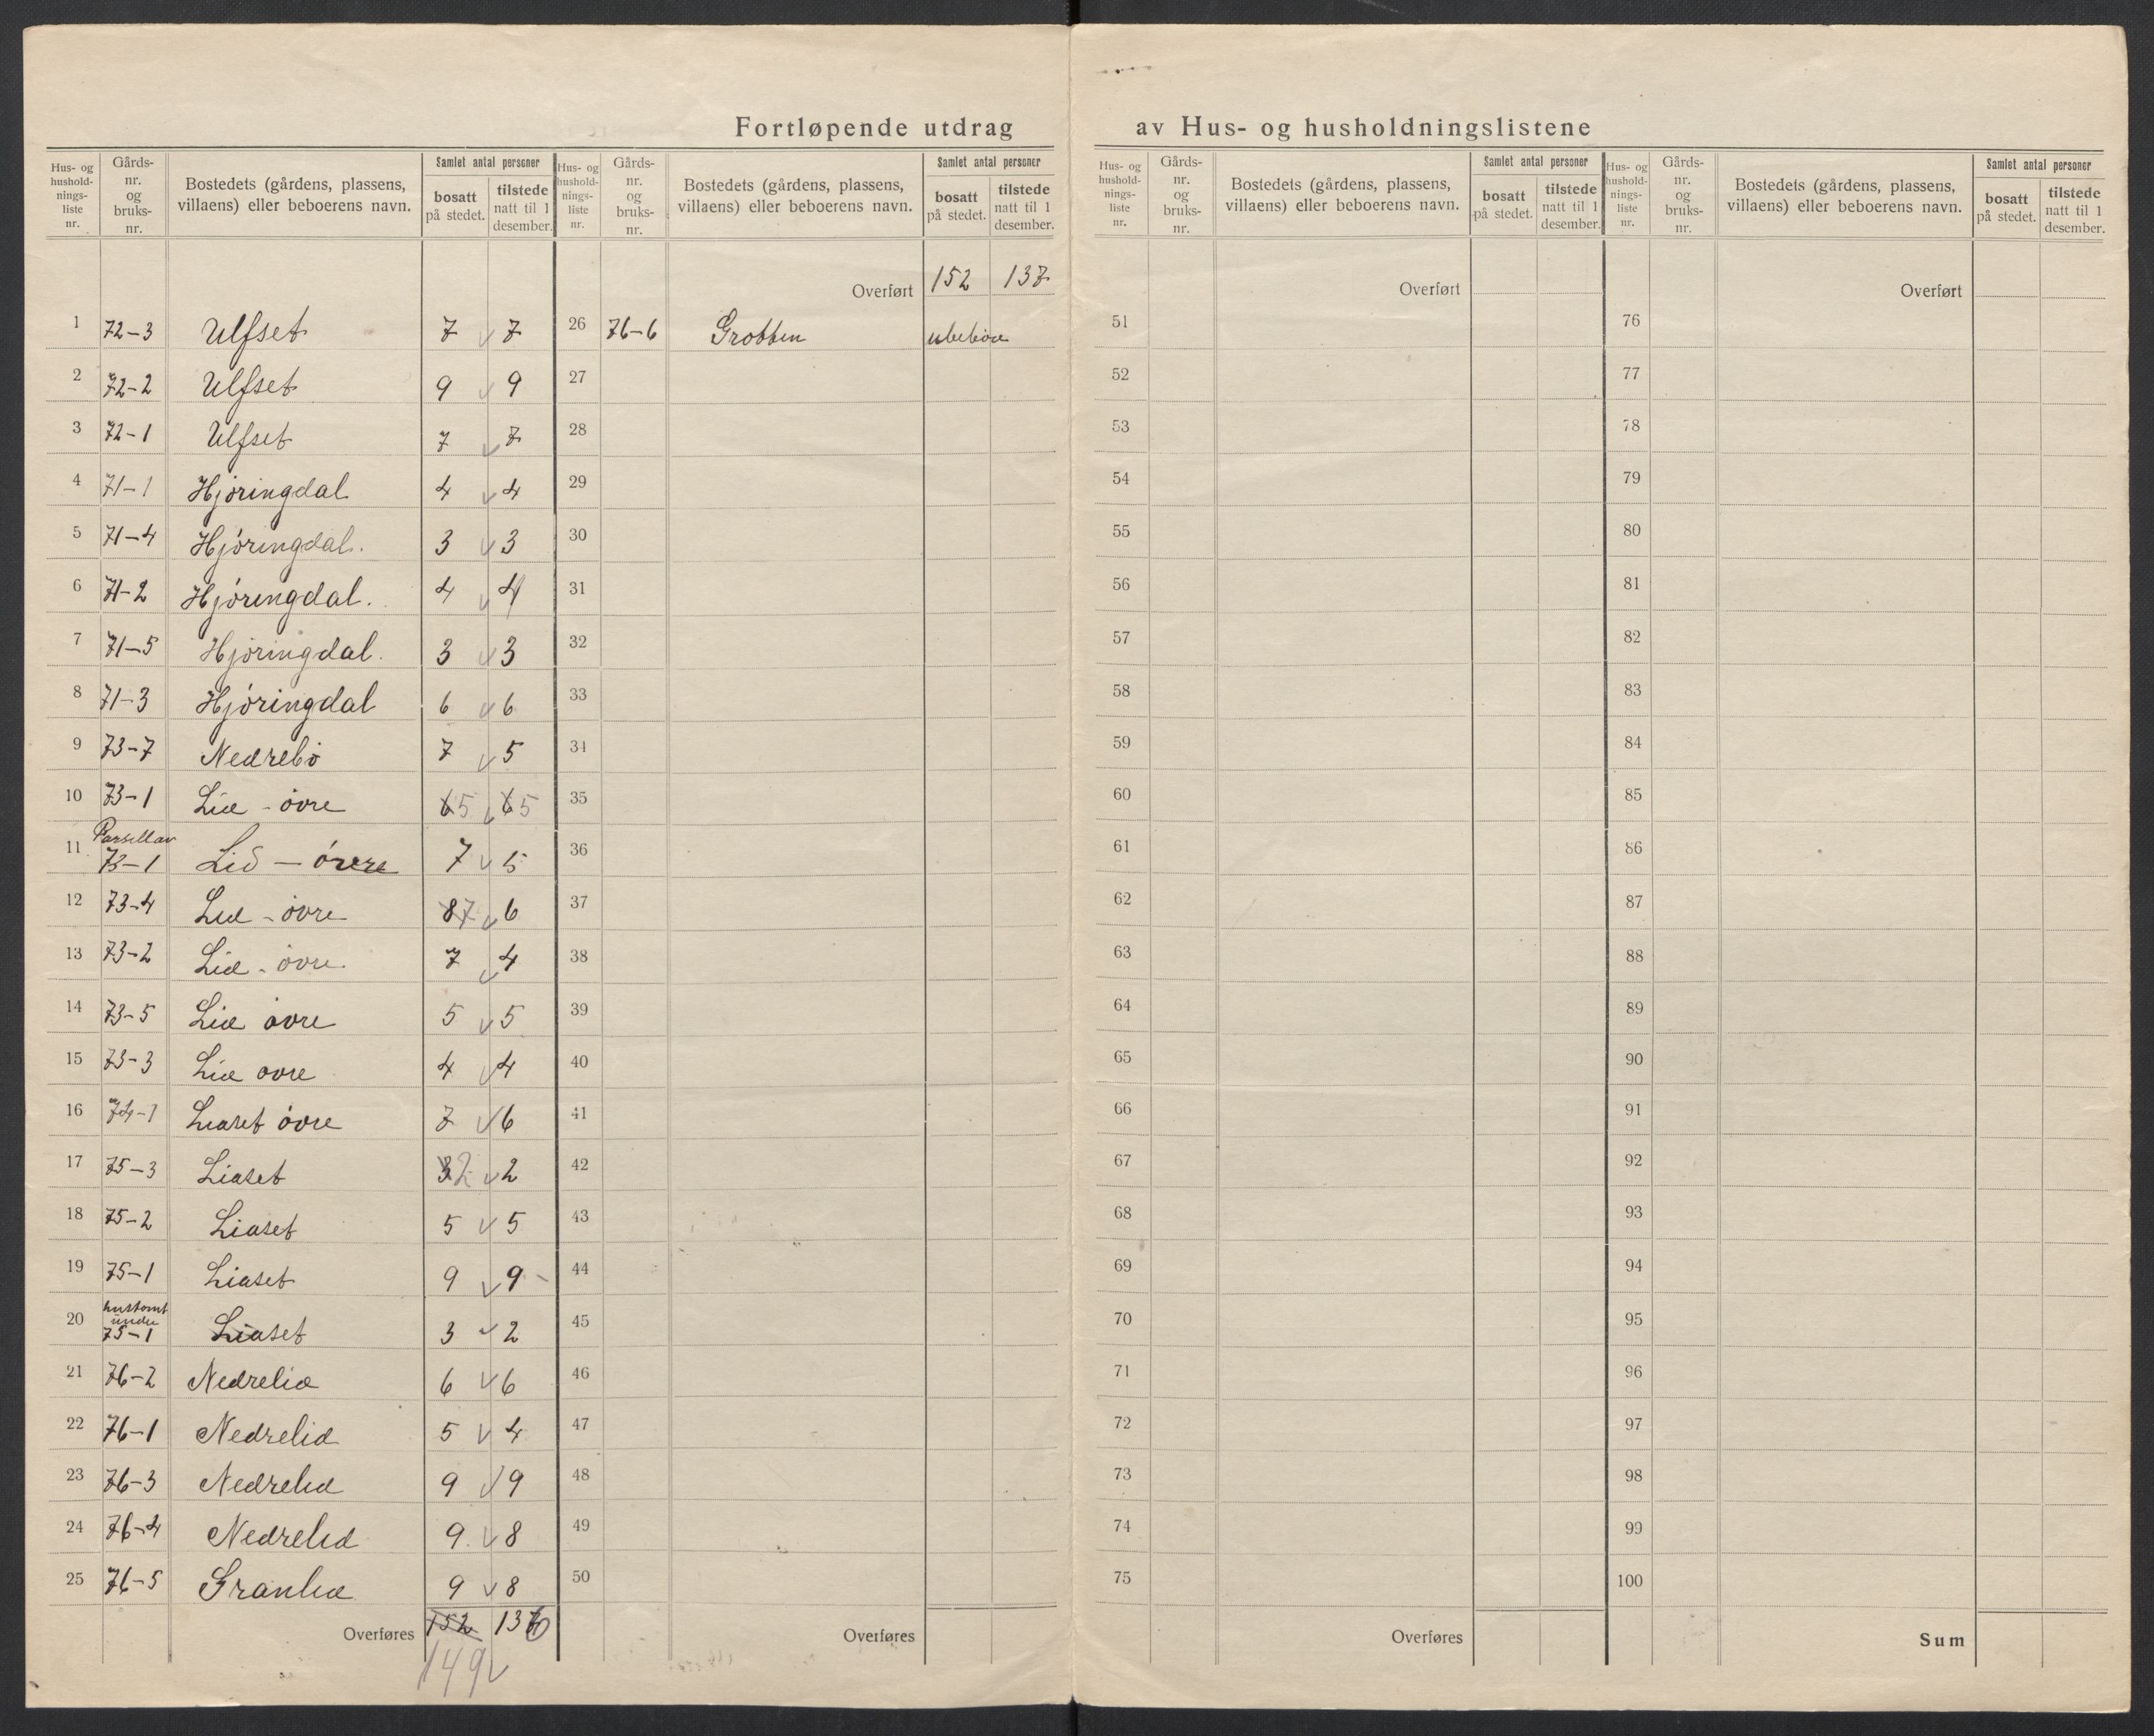 Fortløpende utdrag av Hus- og husholdningslistene
Hus- og hushold- nings- liste nr. Gårds- nr. og bruks- nr. Bostedets (gårdens, plassens, villaens) eller beboerens navn. Samlet antal personer bosatt på stedet. tilstede natt til 1 desember.
1 72-3 Ulfset 7 v 7
2 72-2 Ulfset 9 v 9
3 72-1 Ulfset 7 v 7
4 71-1 Hjöringdal 4 v 4
5 71-4 Hjöringdal. 3 v 3
6 71-2 Hjöringdal. 4 v 4
7 71-5 Hjöringdal. 3 v 3
8 71-3 Hjöringdal 6 v 6
9 73-7 Nedrebö 7 v 5
10 73-1 Lid - övre 6 5 v 6 5
11 Parsell av 73-1 Lid - övre 7 v 5
12 73-4 Lid - övre 8 7 v 6
13 73-2 Lid - övre 7 v 4
14 73-5 Lid övre 5 v 5
15 73-3 Lid övre 4 v 4
16 74-1 Liaset övre 7 v 6
17 75-3 Liaset 3 2 v 2
18 75-2 Liaset 5 v 5
19 75-1 Liaset 9 v 9 -
20 hustomt under 75-1 Liaset 3 v 2
21 76-2 Nedrelid 6 v 6
22 76-1 Nedrelid 5 v 4
23 76-3 Nedrelid 9 v 9
24 76-4 Nedrelid 9 v 8
25 76-5 Granlid 9 v 8
Overføres 152 136
149 v
Hus- og hushold- nings- liste nr. Gårds- nr. og bruks- nr. Bostedets (gårdens, plassens, villaens) eller beboerens navn. Samlet antal personer bosatt på stedet. tilstede natt til 1 desember.
Overført 152 137
26 76-6 Grotten ubeboe
27
28
29
30
31
32
33
34
35
36
37
38
39
40
41
42
43
44
45
46
47
48
49
50
Overføres
Hus- og hushold- nings- liste nr. Gårds- nr. og bruks- nr. Bostedets (gårdens, plassens, villaens) eller beboerens navn. Samlet antal personer bosatt på stedet. tilstede natt til 1 desember.
Overført
51
52
53
54
55
56
57
58
59
60
61
62
63
64
65
66
67
68
69
70
71
72
73
74
75
Overføres
Hus- og hushold- nings- liste nr. Gårds- nr. og bruks- nr. Bostedets (gårdens, plassens, villaens) eller beboerens navn. Samlet antal personer bosatt på stedet. tilstede natt til 1 desember.
Overført
76
77
78
79
80
81
82
83
84
85
86
87
88
89
90
91
92
93
94
95
96
97
98
99
100
Sum